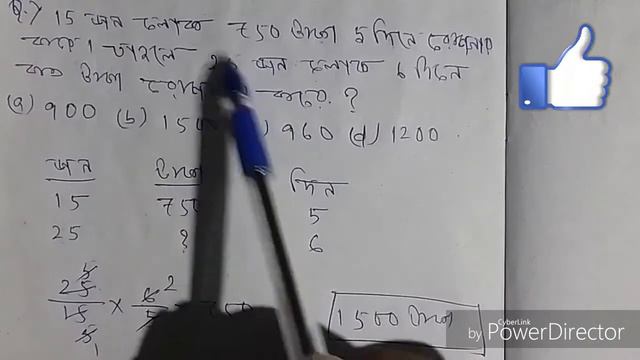 Q.7 15 জন লোকে 750 টাকা 5 দিনে রোজগার
করে। তাহলে জন লোকে 6 দিনে
কত টাকা করে ?
(a) 900 (b) 960 (d) 1200
জন টাকা দিন
15 750 5
25 ? 6
25 5 6 2
15 × 5
3 1
1500 টাকা
CyberLink
by PowerDirector